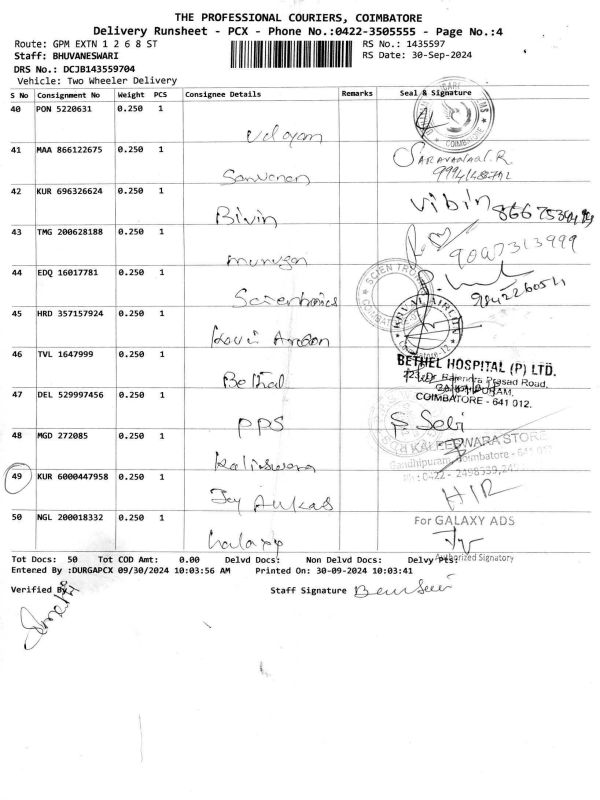 THE PROFESSIONAL COURIERS, COIMBATORE
Delivery Runsheet - PCX - Phone No.:0422-3505555 - Page No.:4
Route: GPM EXTN 1 2 6 8 ST RS No.: 1435597
Staff: BHUVANESWARI RS Date: 30-Sep-2024
DRS No.: DCJB143559704
Vehicle: Two Wheeler Delivery
S No Consignment No Weight PCS Consignee Details Remarks Seal & Signature
40 PON 5220631 0.250 1
Udayam
COIMBATORE
41 MAA 866122675 0.250 1
SARAVANAN.R
Sarvanan
42 KUR 696326624 0.250 1
Bivin
Vibin
43 TMG 200628188 0.250 1
murugan
9047313999
44 EDQ 16017781 0.250 1
Scientronics
9842260511
45 HRD 357157924 0.250 1
46 TVL 1647999 0.250 1
BETHEL HOSPITAL (P) LTD.
Rajendra Prasad Road,
COIMBATORE - 641 012.
Bethal
47 DEL 529997456 0.250 1
PPS
48 MGD 272085 0.250 1
KALEESWARA STORE
Gandhipuram, Coimbatore - 641 012
Kaliswara
49 KUR 6000447958 0.250 1
50 NGL 200018332 0.250 1
For GALAXY ADS
Authorized Signatory
Tot Docs: 50 Tot COD Amt: 0.00 Delvd Docs: Non Delvd Docs: Delvy Pts:
Entered By :DURGAPCX 09/30/2024 10:03:56 AM Printed On: 30-09-2024 10:03:41
Verified By Staff Signature